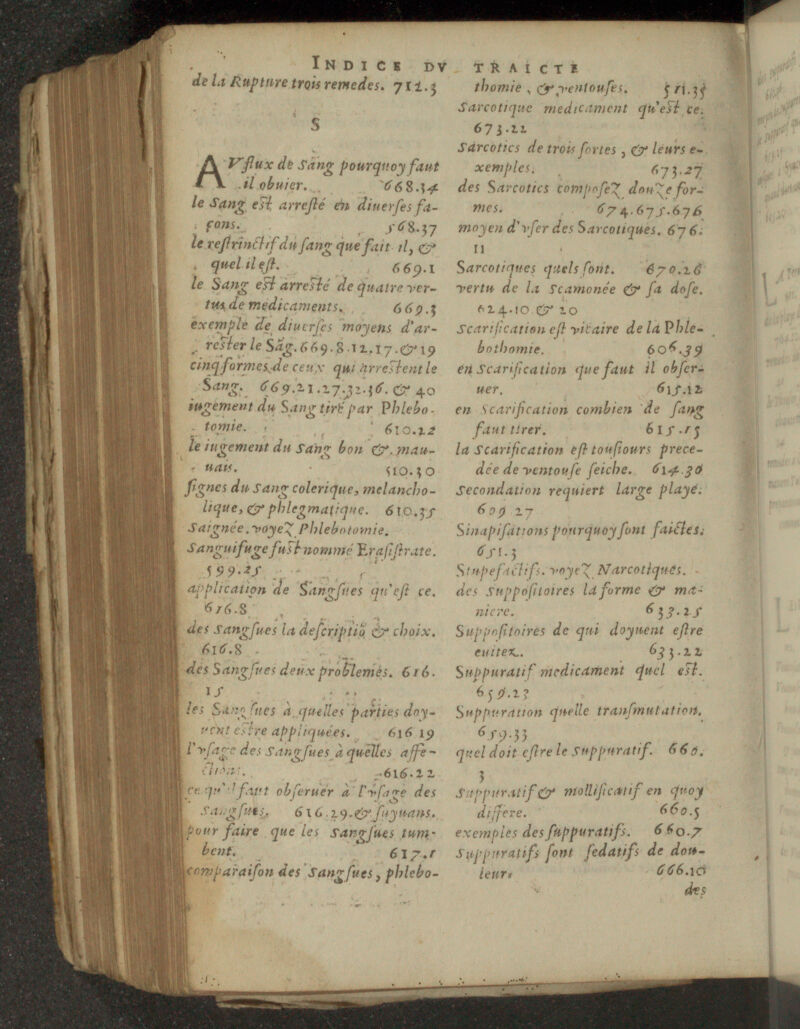 INDICE DV TRAICTE
de la Rupture trois remedes. 711.5
S
AV flux de sang pourquoy faut
il obuier. 668.34
le Sang est arresté en diuerses fa-
çons. 568.37
le restrinctif du sang que fait il, &
quel il est. 669.1
le Sang est arresté de quatre ver-
tus de medicaments. 669.5
exemple de diuerses moyens d'ar-
rester le Sãg. 669.8.12.17.& 19
cinq formes de ceux qui arrestent le
Sang. 669.21.27.32.36. & 40
iugement du Sang tiré par Phlebo-
tomie. 610.22
le iugement du sang bon & mau-
uais. 510.30
signes du sang colerique, melancho-
lique, & phlegmatique. 610.35
Saignée. voyeZ Phlebotomie.
Sanguifuge fust nommé Erasistrate.
599.25
application de Sangsues qu'est ce.
616.8
des sangsues la descriptiõ & choix.
616.8
des Sangsues deux problemes. 616.
15
les Sangsues à quelles parties doy-
uent estre appliquées. 616 19
l'vsage des sangsues à quelles affe-
ctions. 616.22
ce qu'il faut obseruer à l'vsage des
sangsues. 616.29.& suyuans.
pour faire que les sangsues tum-
bent. 617.1
comparaison des sangsues, phlebo-
thomie, & ventouses. 511.35
Sarcotique medicament qu'est ce.
673.22
Sarcotics de trois sortes, & leurs e-
xemples. 673.27
des Sarcotics composeZ douZe for-
mes. 674.675.676
moyen d'vser des Sarcotiques. 676.
11
Sarcotiques quels sont. 670.26
vertu de la scamonée & sa dose.
624.10 & 20
scarification est vicaire de la Phle-
bothomie. 606.39
en scarification que faut il obser-
uer. 615.12
en scarification combien de sang
faut tirer. 615.15
la scarification est tousiours prece-
dée de ventouse seiche. 614.30
secondation requiert large playe.
609 27
Sinapisations pourquoy sont faictes.
651.3
Stupefactifs. voyeZ Narcotiques.
des suppositoires la forme & ma-
niere. 633.25
Suppositoires de qui doyuent estre
euitez. 633.22
Suppuratif medicament quel est.
659.23
Suppuration quelle transmutation.
659.33
quel doit estre le suppuratif. 660.
3
suppuratif & mollificatif en quoy
differe. 660.5
exemples des suppuratifs. 660.7
suppuratifs sont sedatifs de dou-
leur. 666.10
des